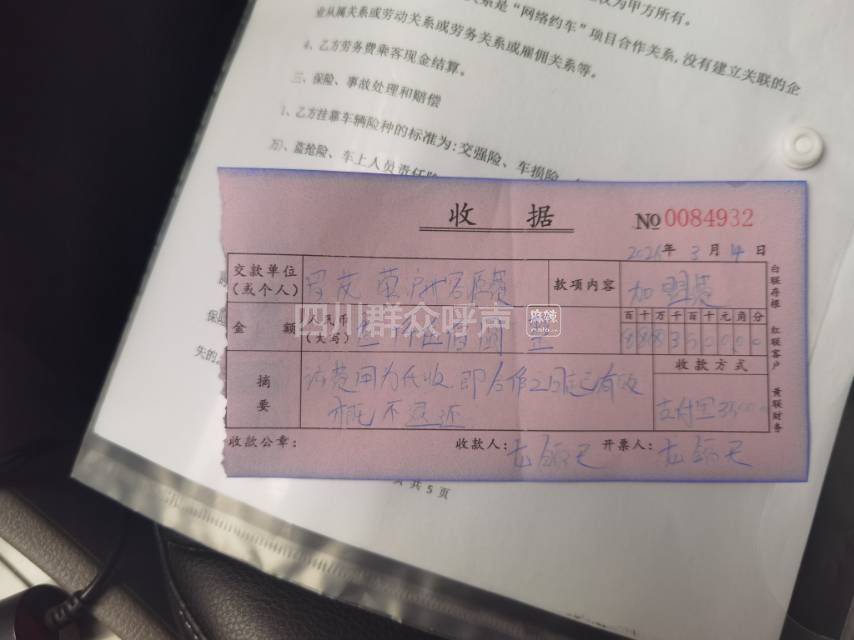 系是“网络约车”项目合作关系,没有建立关联的企
业从属关系或劳动关系或劳务关系或雇佣关系等。
4、乙方劳务费乘客现金结算。
三、保险、事故处理和赔偿
1、乙方挂靠车辆险种的标准为:交强险、车损险、
万)、盗抢险、车上人员责任险
收 据
№ 0084932
2025年 3 月 4 日
交款单位
(或个人)
款项内容
加盟费
金 额
人民币
(大写)
叁仟伍佰圆
百 十 万 千 百 十 元 角 分
收款方式
摘 要
该费用为代收,即合作之日起有效
概不退还
支付宝3500
收款公章:
收款人:
开票人:
白联存根
红联客户
黄联财务
四川群众呼声
麻辣
mala.cn
共 5 页